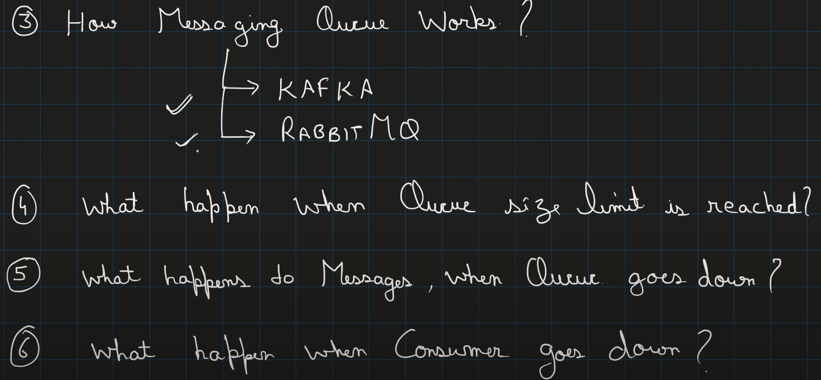 ③ How Messaging Queue Works ?
KAFKA
RABBITMQ
④ What happen when Queue size limit is reached?
⑤ What happens to Messages, when Queue goes down ?
⑥ What happen when Consumer goes down ?